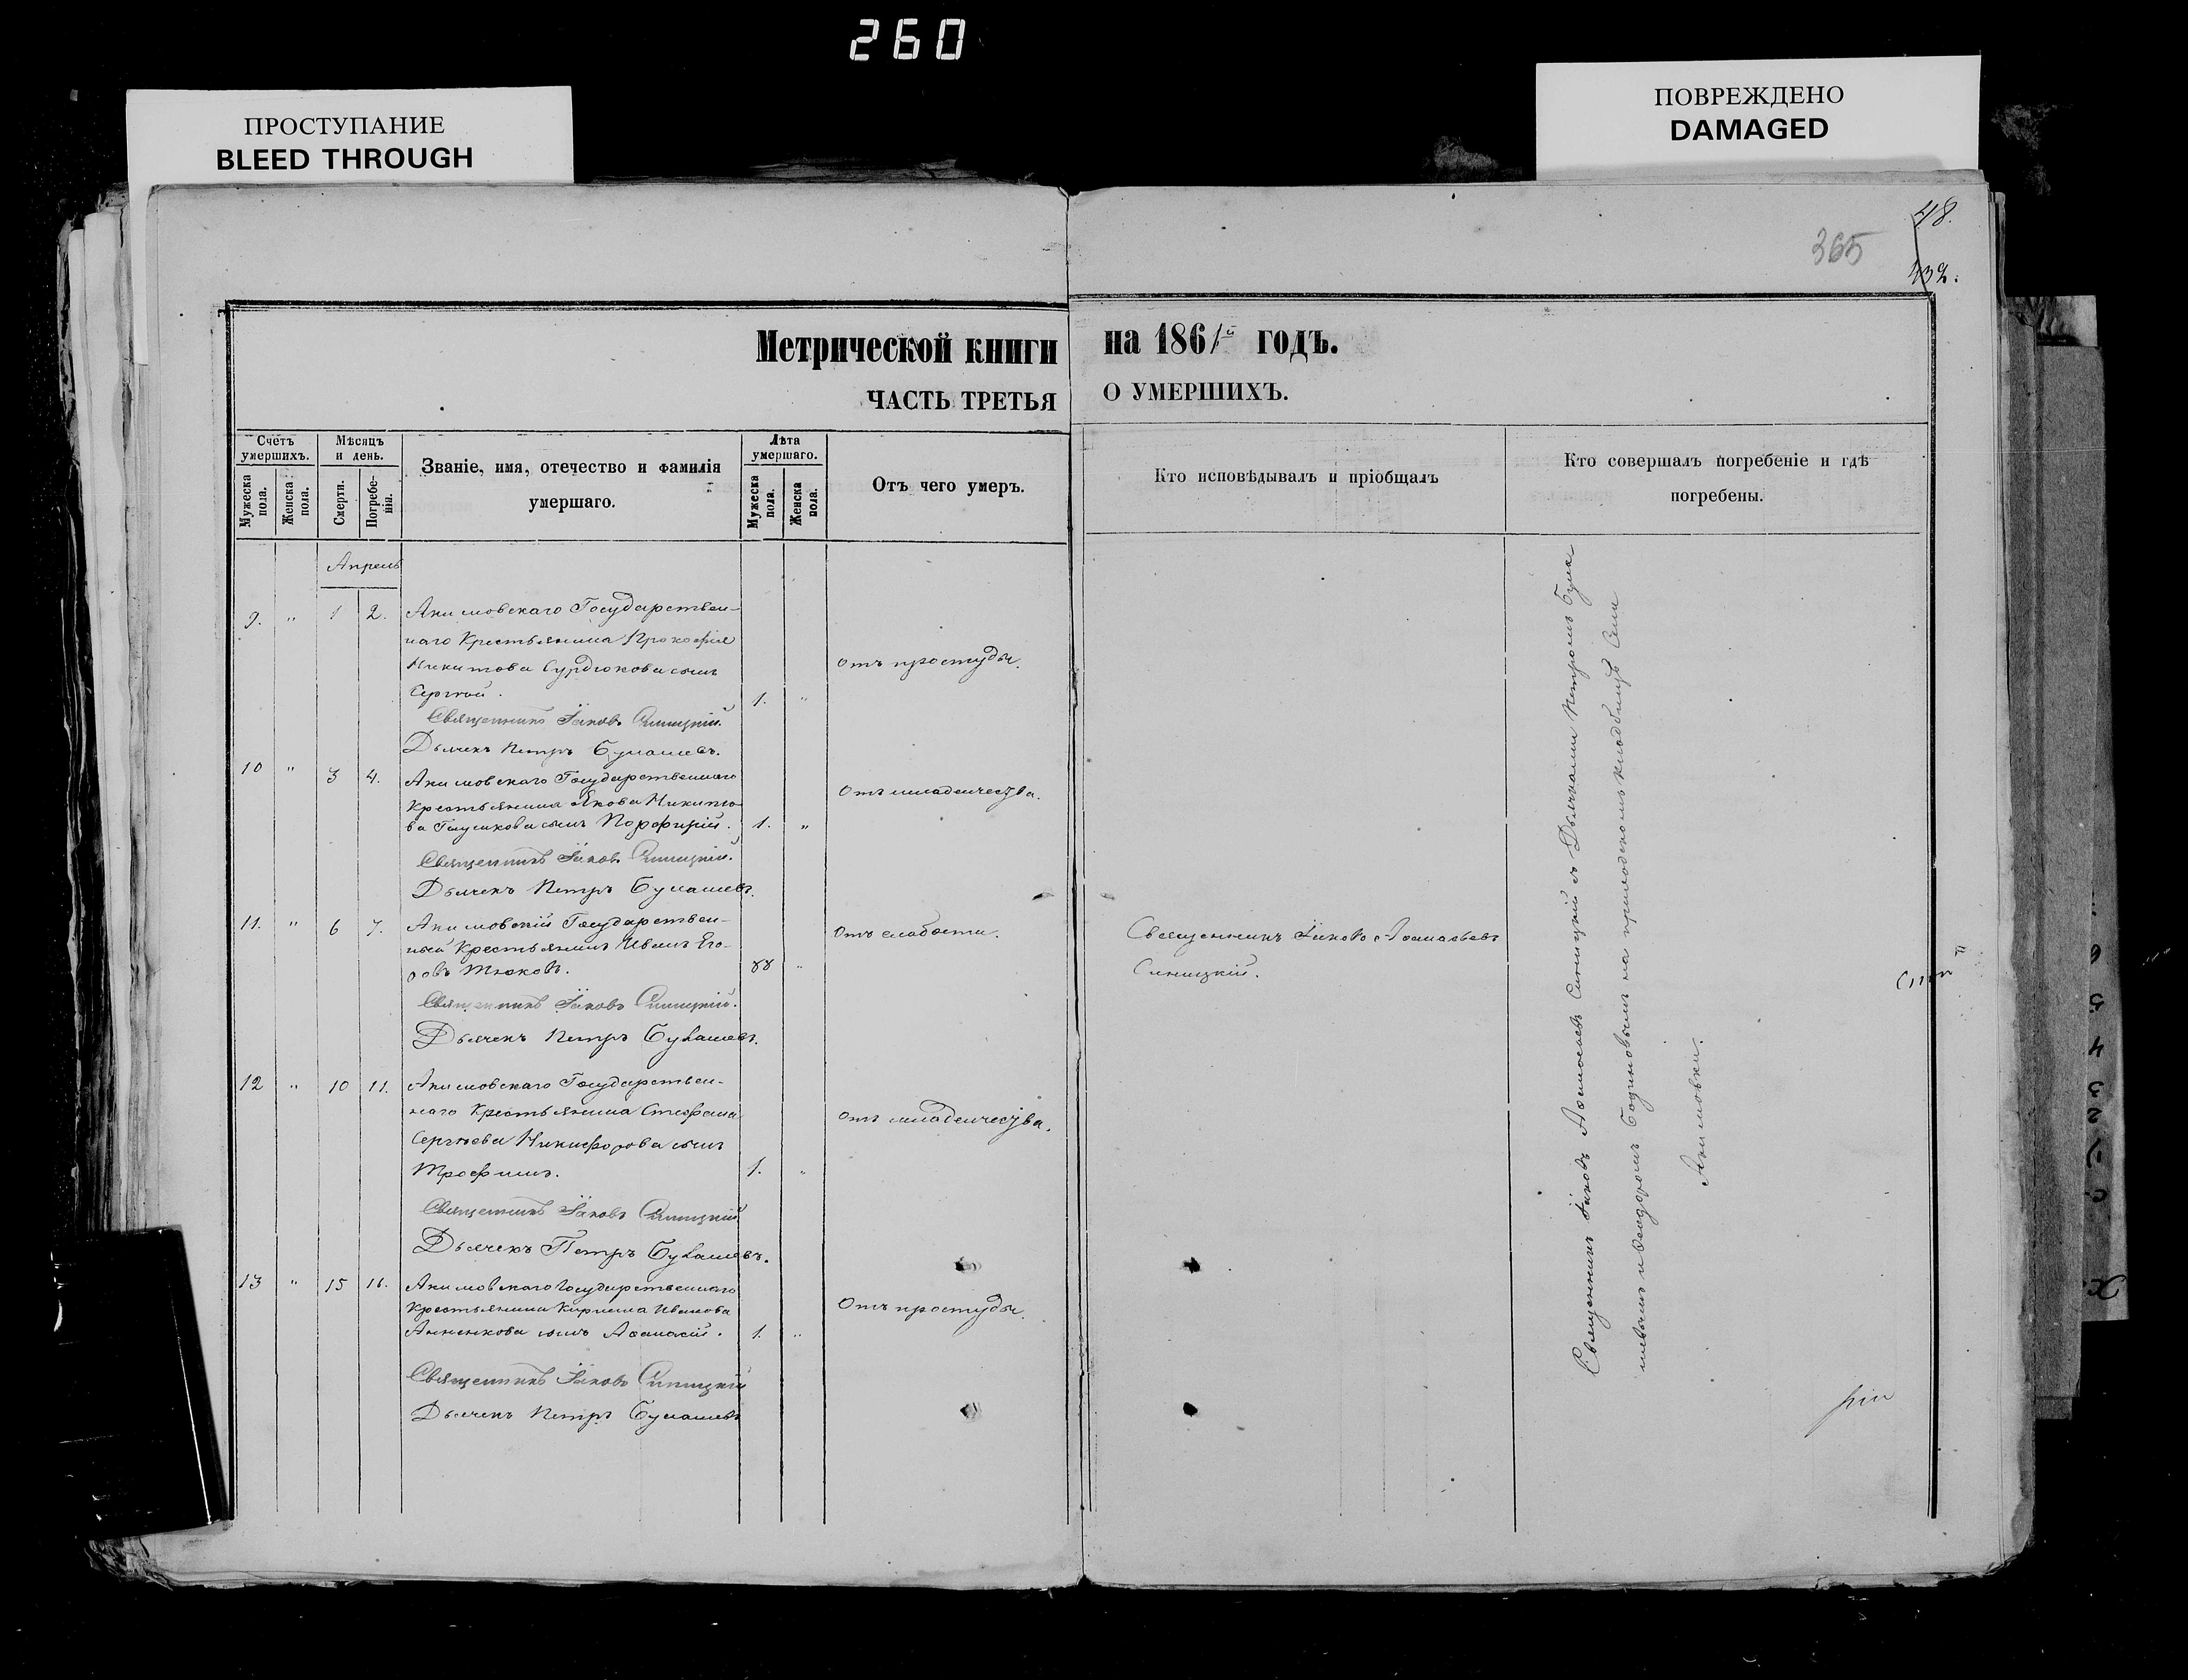 260
ПРОСТУПАНИЕ
BLEED THROUGH
ПОВРЕЖДЕНО
DAMAGED
48.
365
432.
Метрической книги на 1861й годъ.
ЧАСТЬ ТРЕТЬЯ О УМЕРШИХЪ.
Счетъ умершихъ.
Мужеска пола.
Женска пола.
Мѣсяцъ и день.
Смерти.
Погребенія.
Званіе, имя, отечество и фамилія
умершаго.
Лѣта умершаго.
Мужеска пола.
Женска пола.
Отъ чего умеръ.
Кто исповѣдывалъ и пріобщалъ
Кто совершалъ погребеніе и гдѣ
погребены.
Апрель
9. " 1 2. Акимовскаго Государствен-
наго Крестьянина Прокофія
Никитова Сурдюкова сынъ
Сергѣй. 1. " Отъ простуды.
Священникъ Іаковъ Синицкій.
Дьячекъ Петръ Булашевъ.
10 " 3 4. Акимовскаго Государственнаго
Крестьянина Якова Никито-
ва Глушкова сынъ Порфирій. 1. " Отъ младенчества.
Священникъ Іаковъ Синицкій.
Дьячекъ Петръ Булашевъ.
11. " 6 7. Акимовскій Государствен-
ный Крестьянинъ Иванъ Его-
ровъ Тюковъ. 88 " Отъ слабости.
Священникъ Іаковъ Аѳанасьевъ
Синицкій.
Священникъ Іаковъ Синицкій.
Дьячекъ Петръ Булашевъ.
12 " 10 11. Акимовскаго Государствен-
наго Крестьянина Стефана
Сергѣева Никифорова сынъ
Трофимъ. 1. " Отъ младенчества.
Священникъ Іаковъ Синицкій
Дьячекъ Петръ Булашевъ.
13 " 15 16. Акимовскаго Государственнаго
Крестьянина Кирилла Иванова
Анненкова сынъ Аѳанасій. 1. " Отъ простуды.
Священникъ Іаковъ Синицкій
Дьячекъ Петръ Булашевъ
Священникъ Іаковъ Аѳанасьевъ Синицкій съ Дьячками Петромъ Була
шевымъ и Ѳеодоромъ на приходскомъ кладбищѣ Села
Акимовки.